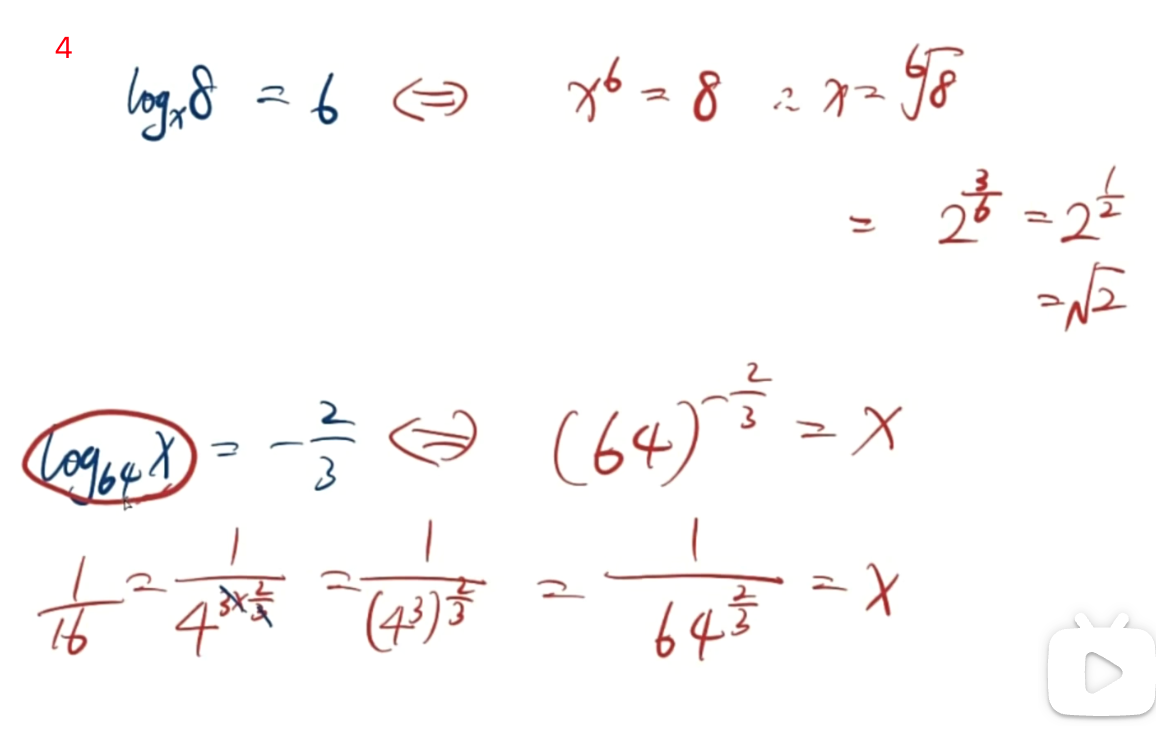 4
logₓ8 = 6 ⇔ x⁶ = 8 ∴ x = ⁶√8
= 2^(3/6) = 2^(1/2)
= √2
log₆₄X = -2/3 ⇔ (64)^(-2/3) = X
1/16 = 1/4^(3×2/3) = 1/(4³)^(2/3) = 1/64^(2/3) = X